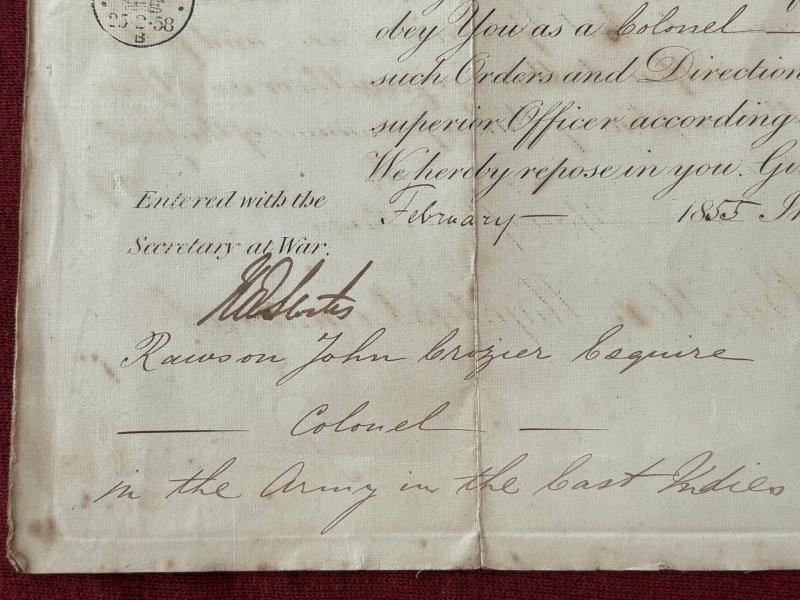 25·2·58
B
obey You as a Colonel —
such Orders and Direction
superior Officer according
We hereby repose in you. Gi
Entered with the
February — 1855 In
Secretary at War.
Rawson John Crozier Esquire
— Colonel —
in the Army in the East Indies